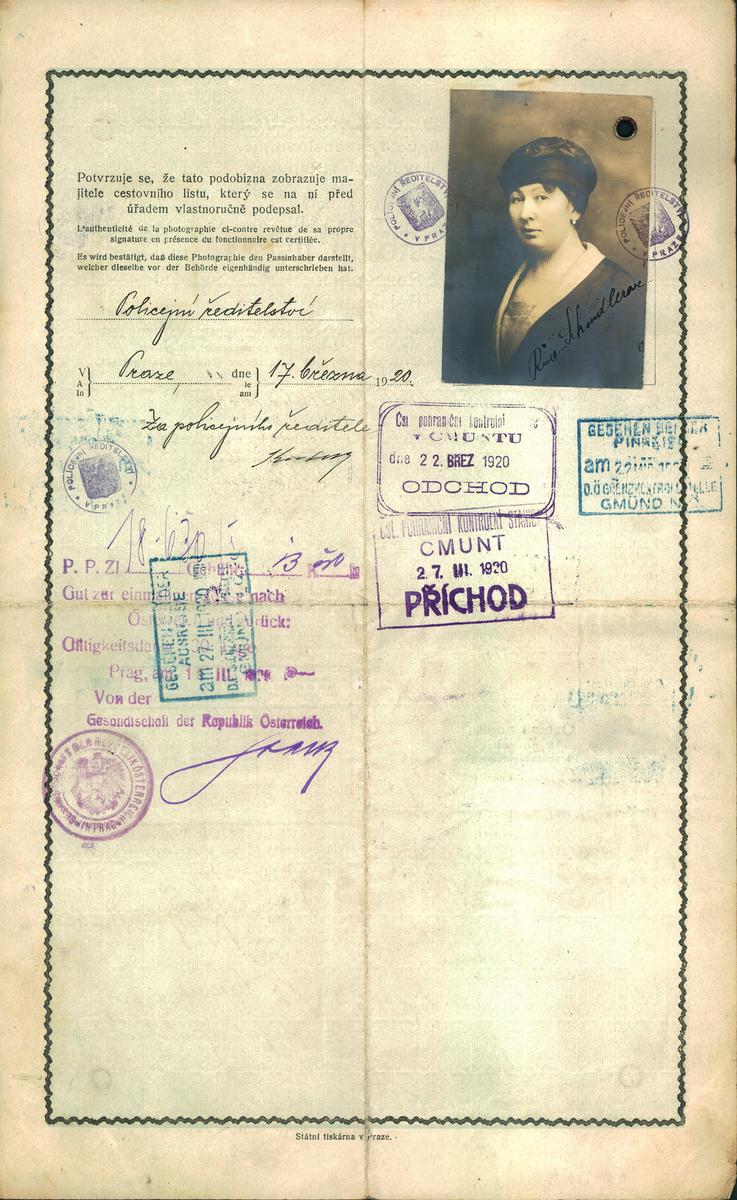 Potvrzuje se, že tato podobizna zobrazuje ma-
jitele cestovního listu, který se na ní před
úřadem vlastnoručně podepsal.
L'authenticité de la photographie ci-contre revêtue de sa propre
signature en présence du fonctionnaire est certifiée.
Es wird bestätigt, daß diese Photographie den Passinhaber darstellt,
welcher dieselbe vor der Behörde eigenhändig unterschrieben hat.
POLICEJNÍ ŘEDITELSTVÍ V PRAZE
POLICEJNÍ ŘEDITELSTVÍ V PRAZE
Schindlerová
Policejní ředitelství
V Praze, dne 17. března 1920.
A le
In am
Za policejního ředitele
POLICEJNÍ ŘEDITELSTVÍ V PRAZE
Čsl. pohraniční kontrolní
V CMUNTU
dne 22. BŘEZ 1920
ODCHOD
GESEHEN BEI DER
EINREISE
am 22
D.Ö GRENZKONTROLLSTELLE
GMÜND
ČSL. POHRANIČNÍ KONTROLNÍ STANICE
CMUNT
27. III. 1920
PŘÍCHOD
P. P. Zl
Gut zur einmaligen Reise nach
Österreich und zurück:
Gültigkeitsdauer Tage
Prag, am III. 1920
Von der
Gesandtschaft der Republik Österreich.
GESEHEN BEI DER
AUSREISE
am 27 III 1920
IN PRAG
Státní tiskárna v Praze.